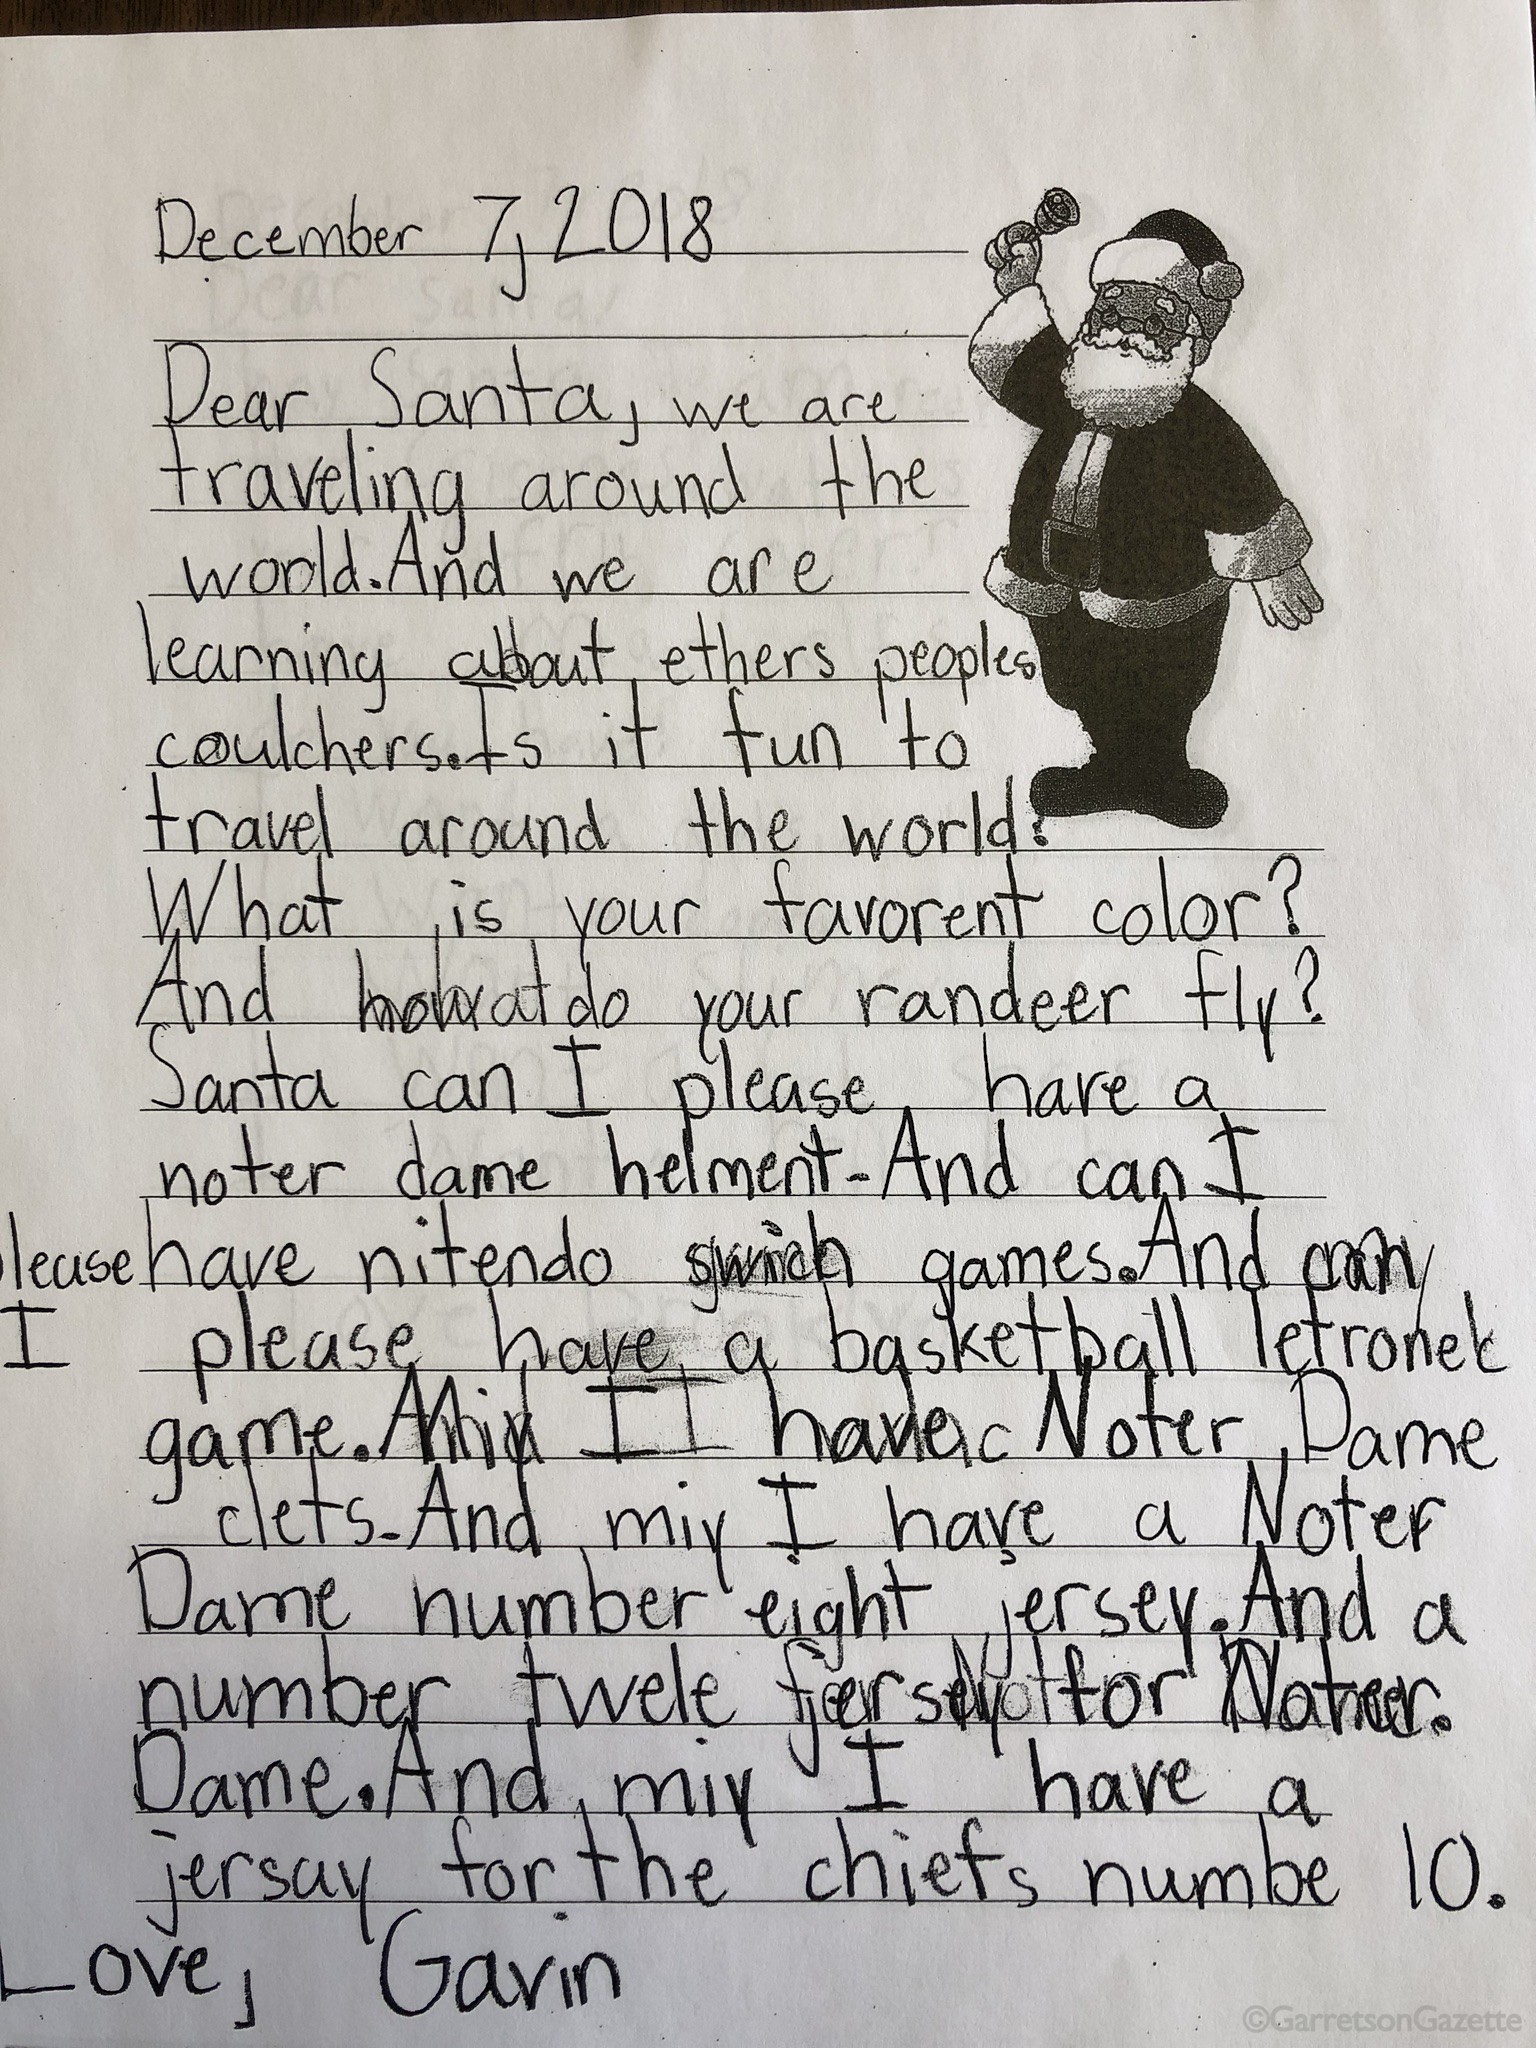 December 7, 2018
Dear Santa, we are
traveling around the
woold. And we are
learning about ethers peoples
coulchers. Is it fun to
travel around the world?
What is your favorent color?
And do your randeer fly?
Santa can I please have a
noter dame helment. And can I
please have nitendo swich games. And can
I please have a basketball letronek
game. I have Noter Dame
clets. And miy I have a Noter
Dame number eight jersey. And a
number twele for Noter.
Dame. And miy I have a
jersay for the chiefs numbe 10.
Love, Gavin
©GarretsonGazette